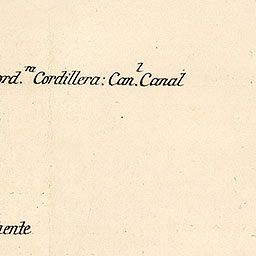 ord.ra Cordillera: Can.l Canal
uente